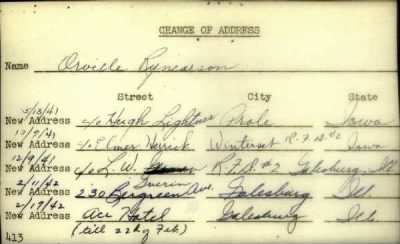 CHANGE OF ADDRESS
Name Orville Rynearson
Street City State
3/13/41
New Address c/o Hugh Lightner Prole Iowa
10/7/41
New Address c/o Elmer Herrick Winterset R.F.D. #2 Iowa
12/9/41
New Address c/o L.W. R.F.D. #2 Galesburg, Ill
2/11/42
New Address 230 Bergreen Ave. Galesburg Ill.
2/17/42
New Address Ace Hotel Galesburg Ill.
413 (till 22 by Feb.)